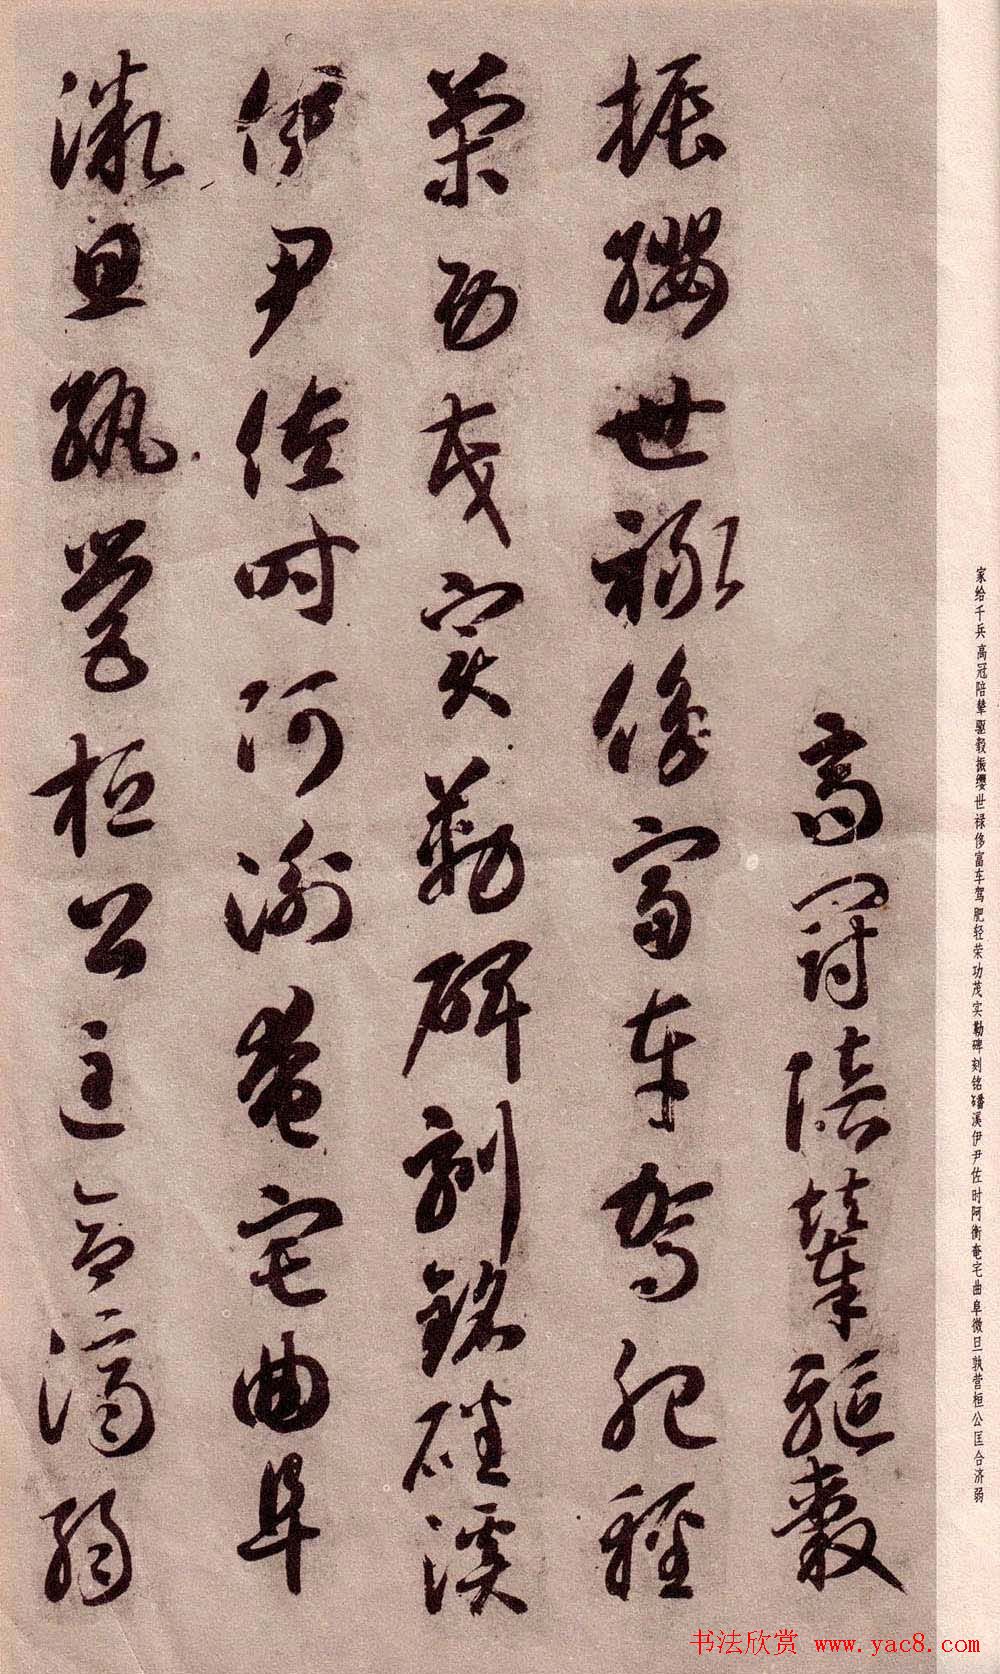 家给千兵 高冠陪辇驱毂振缨世禄侈富车驾肥轻荣功茂实勒碑刻铭磻溪伊尹佐时阿衡奄宅曲阜微旦孰营桓公匡合济弱
高冠陪輦驅轂
振纓世祿侈富車駕肥輕
策功茂實勒碑刻銘磻溪
伊尹佐時阿衡奄宅曲阜
微旦孰營桓公匡合濟弱
书法欣赏 www.yac8.com